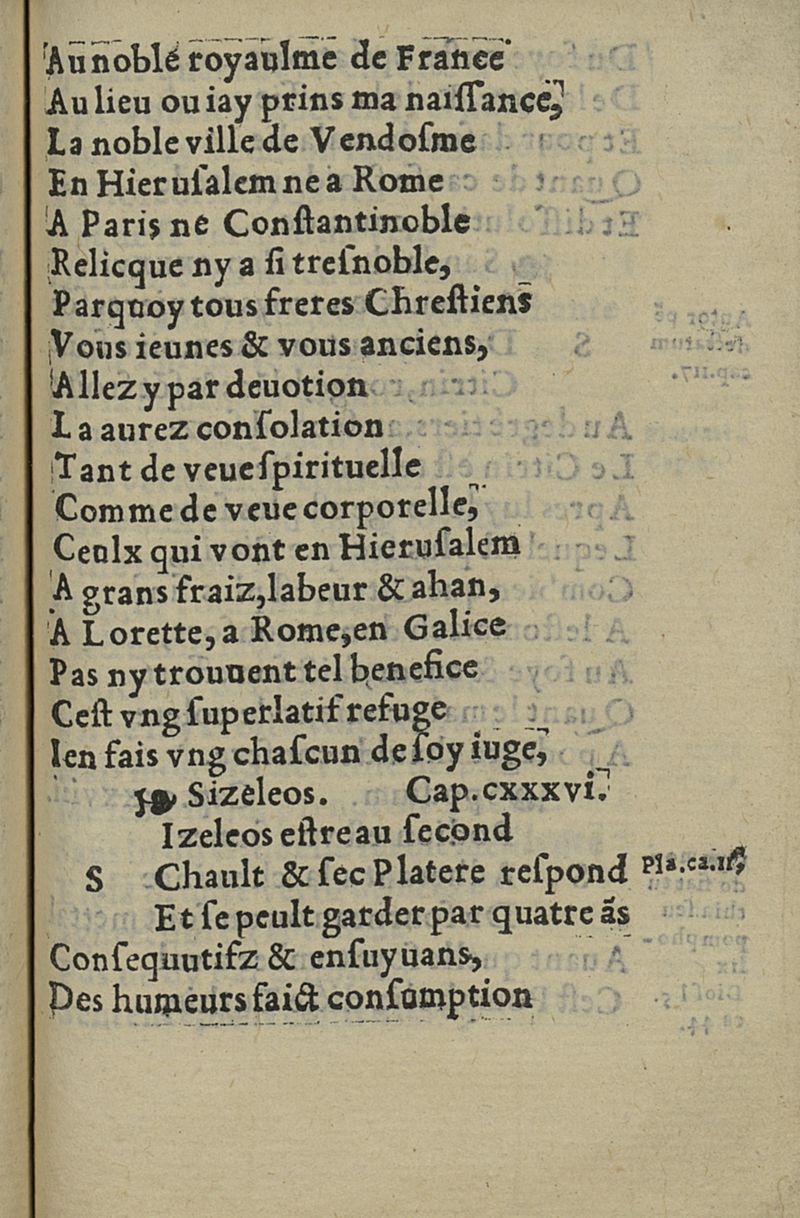 Au noble royaulme de France
Au lieu ou iay prins ma naiſſance,
La noble ville de Vendoſme
En Hieruſalem ne a Rome
A Paris ne Conſtantinoble
Relicque ny a ſi treſnoble,
Parquoy tous freres Chreſtiens
Vous ieunes & vous anciens,
Allez y par deuotion
La aurez conſolation
Tant de veue ſpirituelle
Comme de veue corporelle,
Ceulx qui vont en Hieruſalem
A grans fraiz, labeur & ahan,
A Lorette, a Rome, en Galice
Pas ny trouuent tel benefice
Ceſt vng ſuperlatif refuge
Ien fais vng chaſcun de ſoy iuge,
Sizeleos. Cap.cxxxvi.
Izeleos eſtre au ſecond
S Chault & ſec Platere reſpond Pla.ca.
Et ſe peult garder par quatre ãs
Conſequutifz & enſuyuans,
Des humeurs faict conſumption